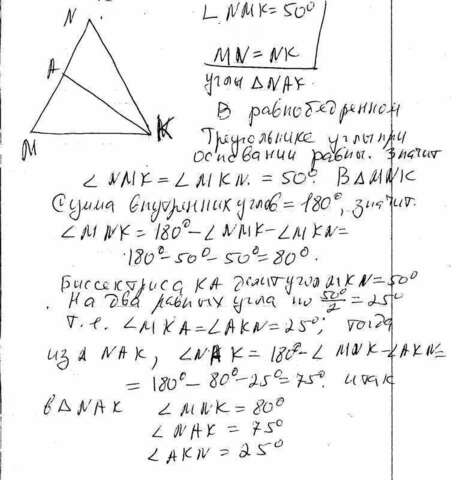 N
∠NMK = 50°
MN = NK
A
углы △NAK.
В равнобедренном
M
K
Треугольнике углы при
основании равны. Значит
∠NMK = ∠MKN. = 50°. В △MNK
Сумма внутренних углов = 180°, значит.
∠MNK = 180° - ∠NMK - ∠MKN =
180° - 50° - 50° = 80°.
Биссектриса KA делит угол MKN = 50°
. На два равных угла по 50°/2 = 25°
т.е. ∠MKA = ∠AKN = 25°; тогда
из △ NAK, ∠NAK = 180° - ∠MNK - ∠AKN =
= 180° - 80° - 25° = 75°. итак
в △NAK ∠MNK = 80°
∠NAK = 75°
∠AKN = 25°